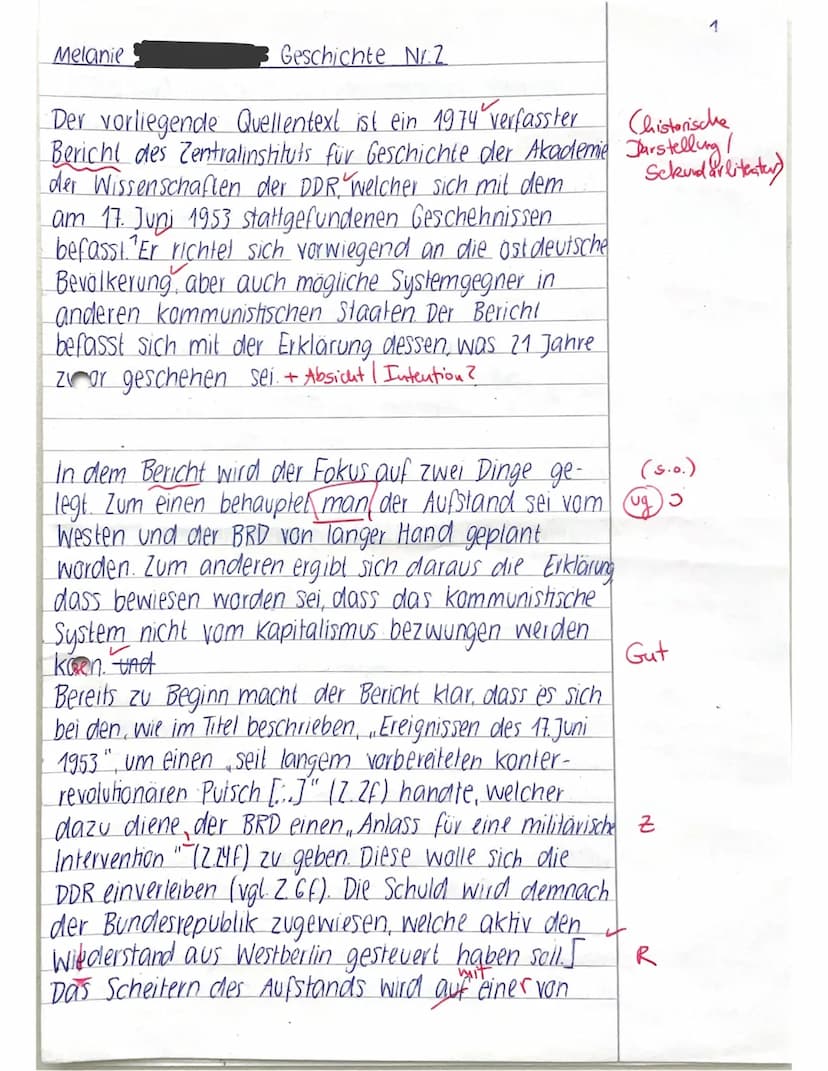 1
Melanie Geschichte Nr.2
Der vorliegende Quellentext ist ein 1974 verfasster
(historische
Bericht des Zentralinstituts für Geschichte der Akademie
Darstellung /
der Wissenschaften der DDR, welcher sich mit dem
Sekundärliteratur)
am 17. Juni 1953 stattgefundenen Geschehnissen
befasst. Er richtet sich vorwiegend an die ostdeutsche
Bevölkerung, aber auch mögliche Systemgegner in
anderen kommunistischen Staaten. Der Bericht
befasst sich mit der Erklärung dessen, was 21 Jahre
zuvor geschehen sei. + Absicht / Intention?
In dem Bericht wird der Fokus auf zwei Dinge ge-
(s.o.)
legt. Zum einen behauptet man, der Aufstand sei vom
ug
Westen und der BRD von langer Hand geplant
worden. Zum anderen ergibt sich daraus die Erklärung
dass bewiesen worden sei, dass das kommunistische
System nicht vom Kapitalismus bezwungen werden
und
Gut
Bereits zu Beginn macht der Bericht klar, dass es sich
bei den, wie im Titel beschrieben, „Ereignissen des 17. Juni
1953", um einen „seit langem vorbereiteten konter-
revolutionären Putsch [...]" (Z. 2f) handle, welcher
dazu diene, der BRD einen „Anlass für eine militärische
Z
Intervention" (Z.24f) zu geben. Diese wolle sich die
DDR einverleiben (vgl. Z. 6f). Die Schuld wird demnach
der Bundesrepublik zugewiesen, welche aktiv den
Wiederstand aus Westberlin gesteuert haben soll.
R
mit
Das Scheitern des Aufstands wird auf einer von